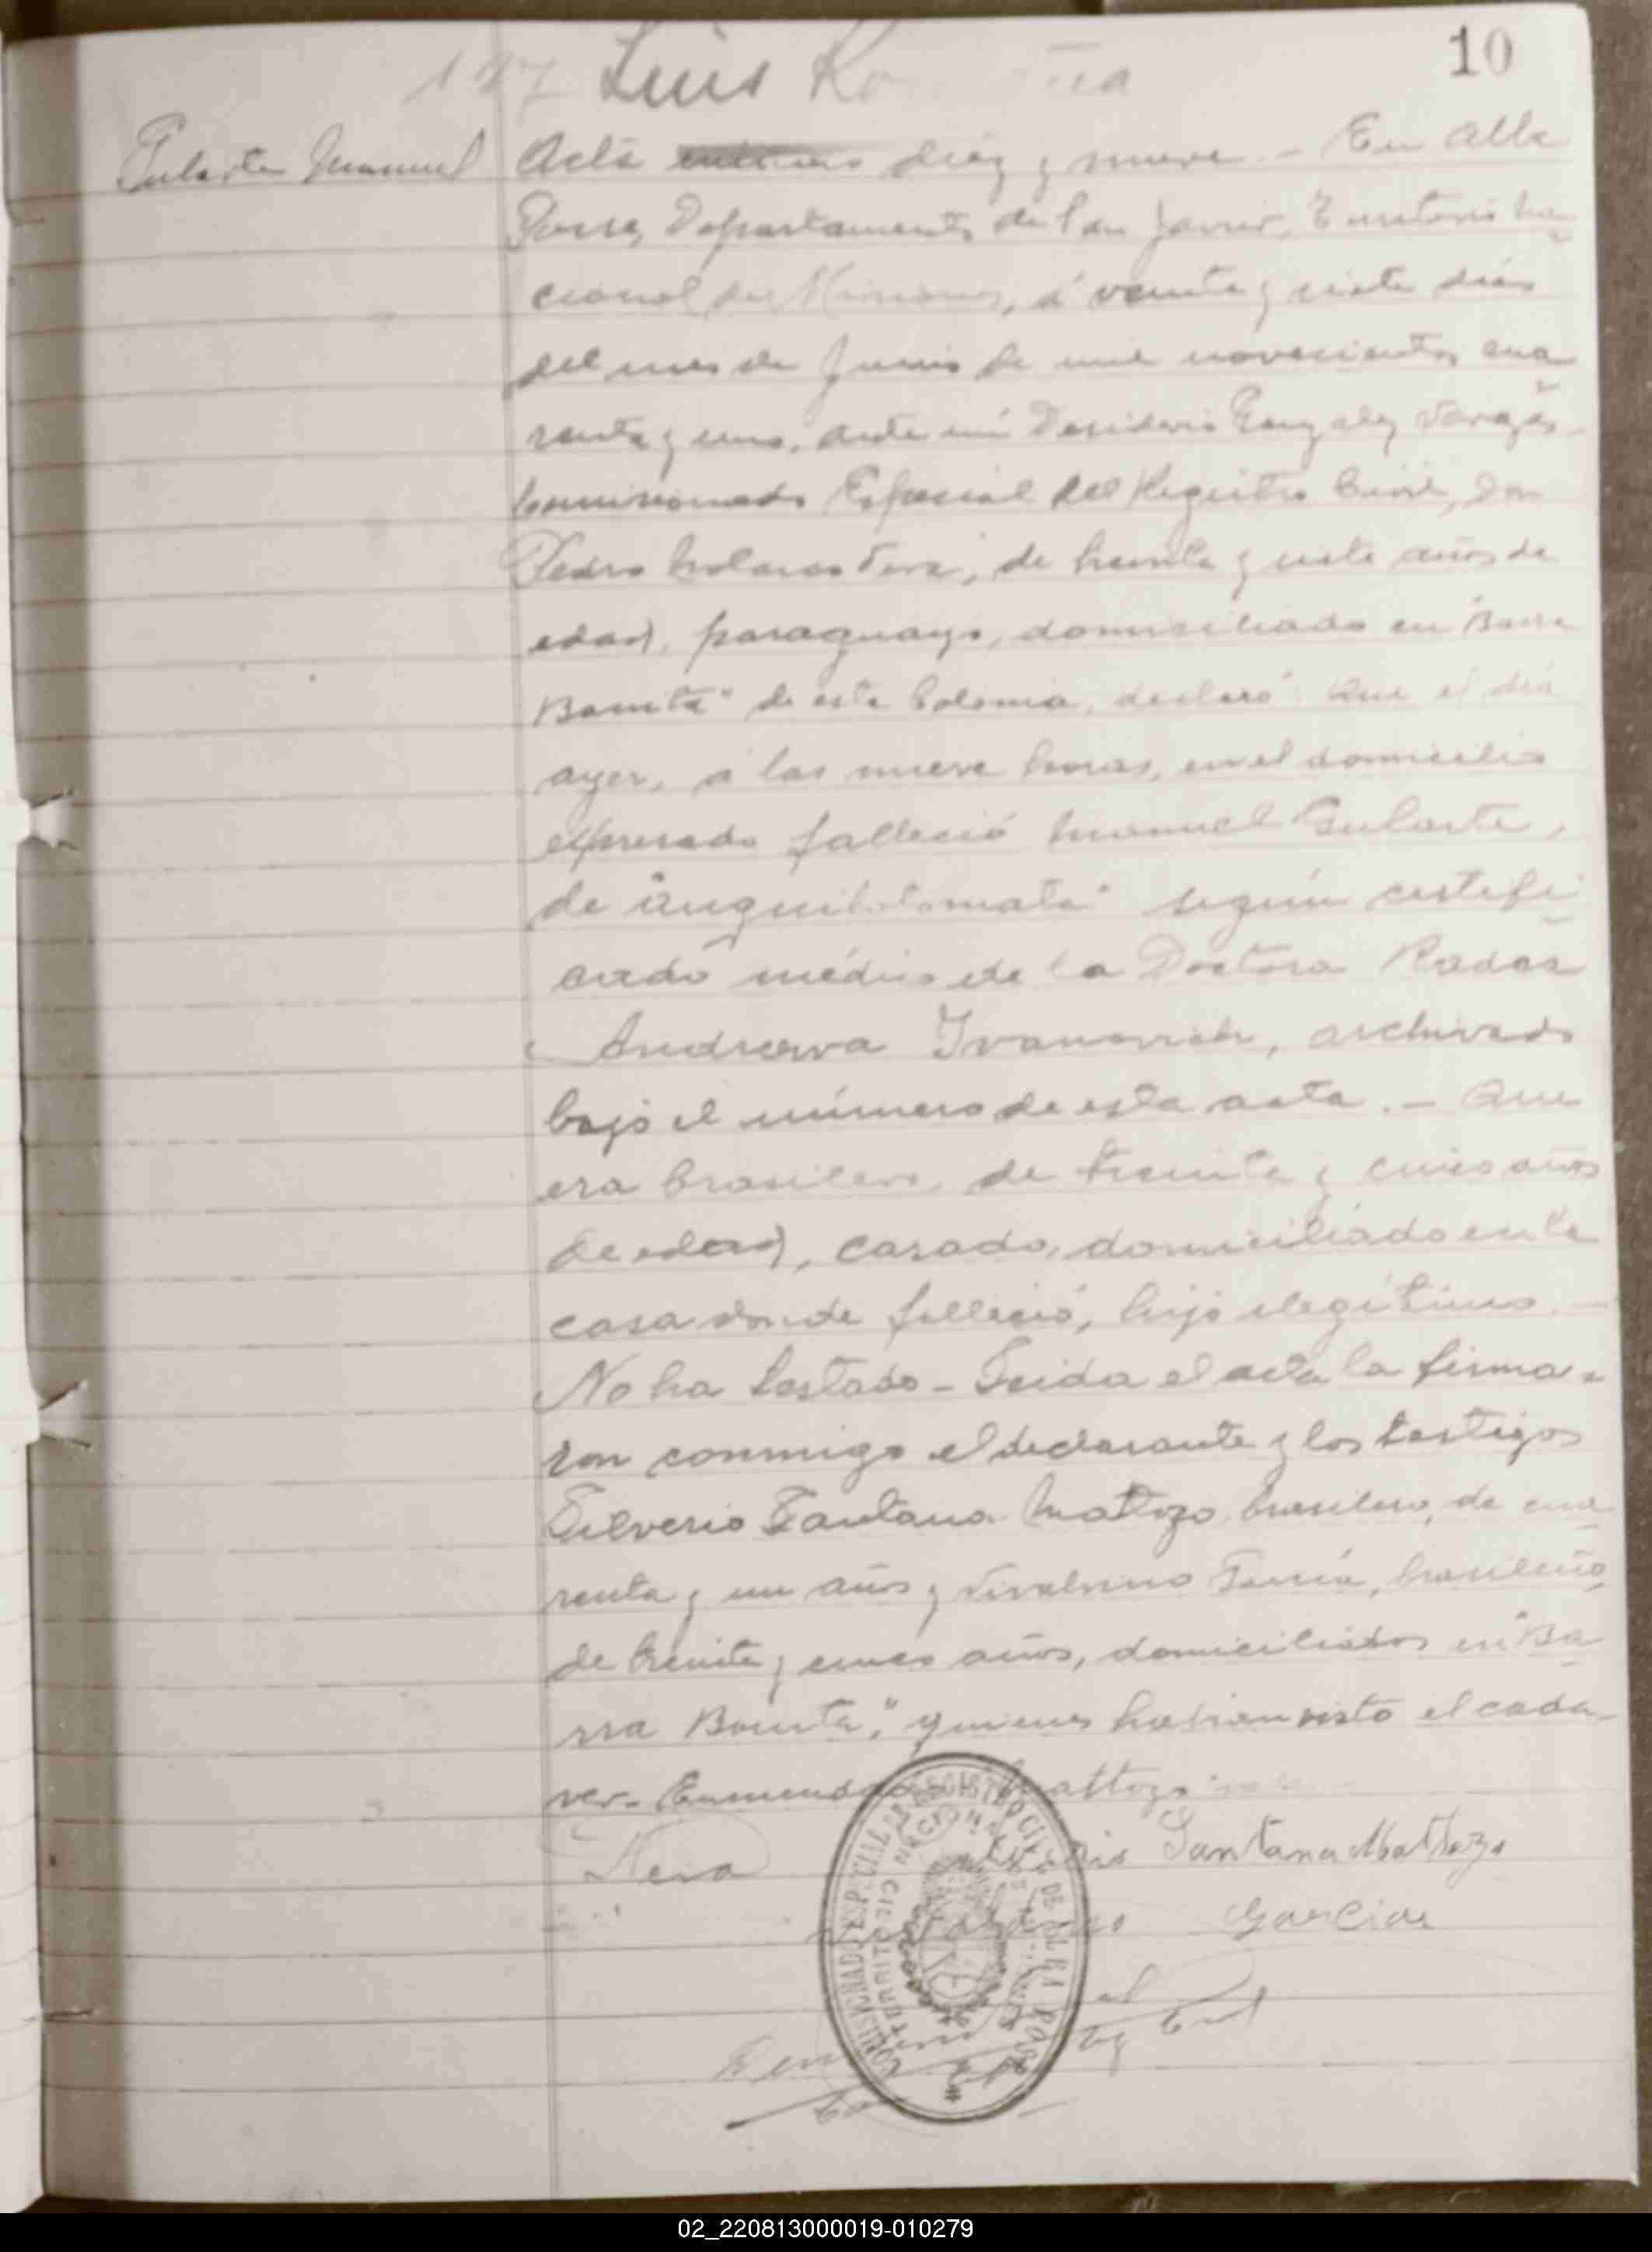 10
Luis
Gularte Manuel
Acta diez y nueve. - En Alba
Posse, Departamento de San Javier, Territorio Na
cional de Misiones, á veinte y siete dias
del mes de Junio de mil novecientos cua
renta y uno, ante mí Desiderio Gonzalez Vargas
Comisionado Especial del Registro Civil, Don
Pedro Neva, de treinta y siete años de
edad, paraguayo, domiciliado en "Barra
Bonita" de esta Colonia, declaró: Que el día
ayer, á las nueve horas, en el domicilio
expresado falleció Manuel Gularte,
de según certifi
cado médico de la Doctora Radka
Andreewa Ivanovich, archivado
bajo el número de esta acta. - Que
era brasilero, de treinta y cinco años
de edad, casado, domiciliado en la
casa donde falleció, hijo ilegítimo. -
No ha testado - Leida el acta la firma-
ron conmigo el declarante y los testigos
Silverio Santana Mattozo, brasilero, de cua
renta y un años y García, brasileño,
de treinta y cinco años, domiciliados en "Ba
rra Bonita", quienes habian visto el cadá-
ver. - Mattozo
Santana Mattozo
Garcia
COMISIONADO ESPECIAL DEL REGISTRO CIVIL DE ALBA POSSE
02_220813000019-010279